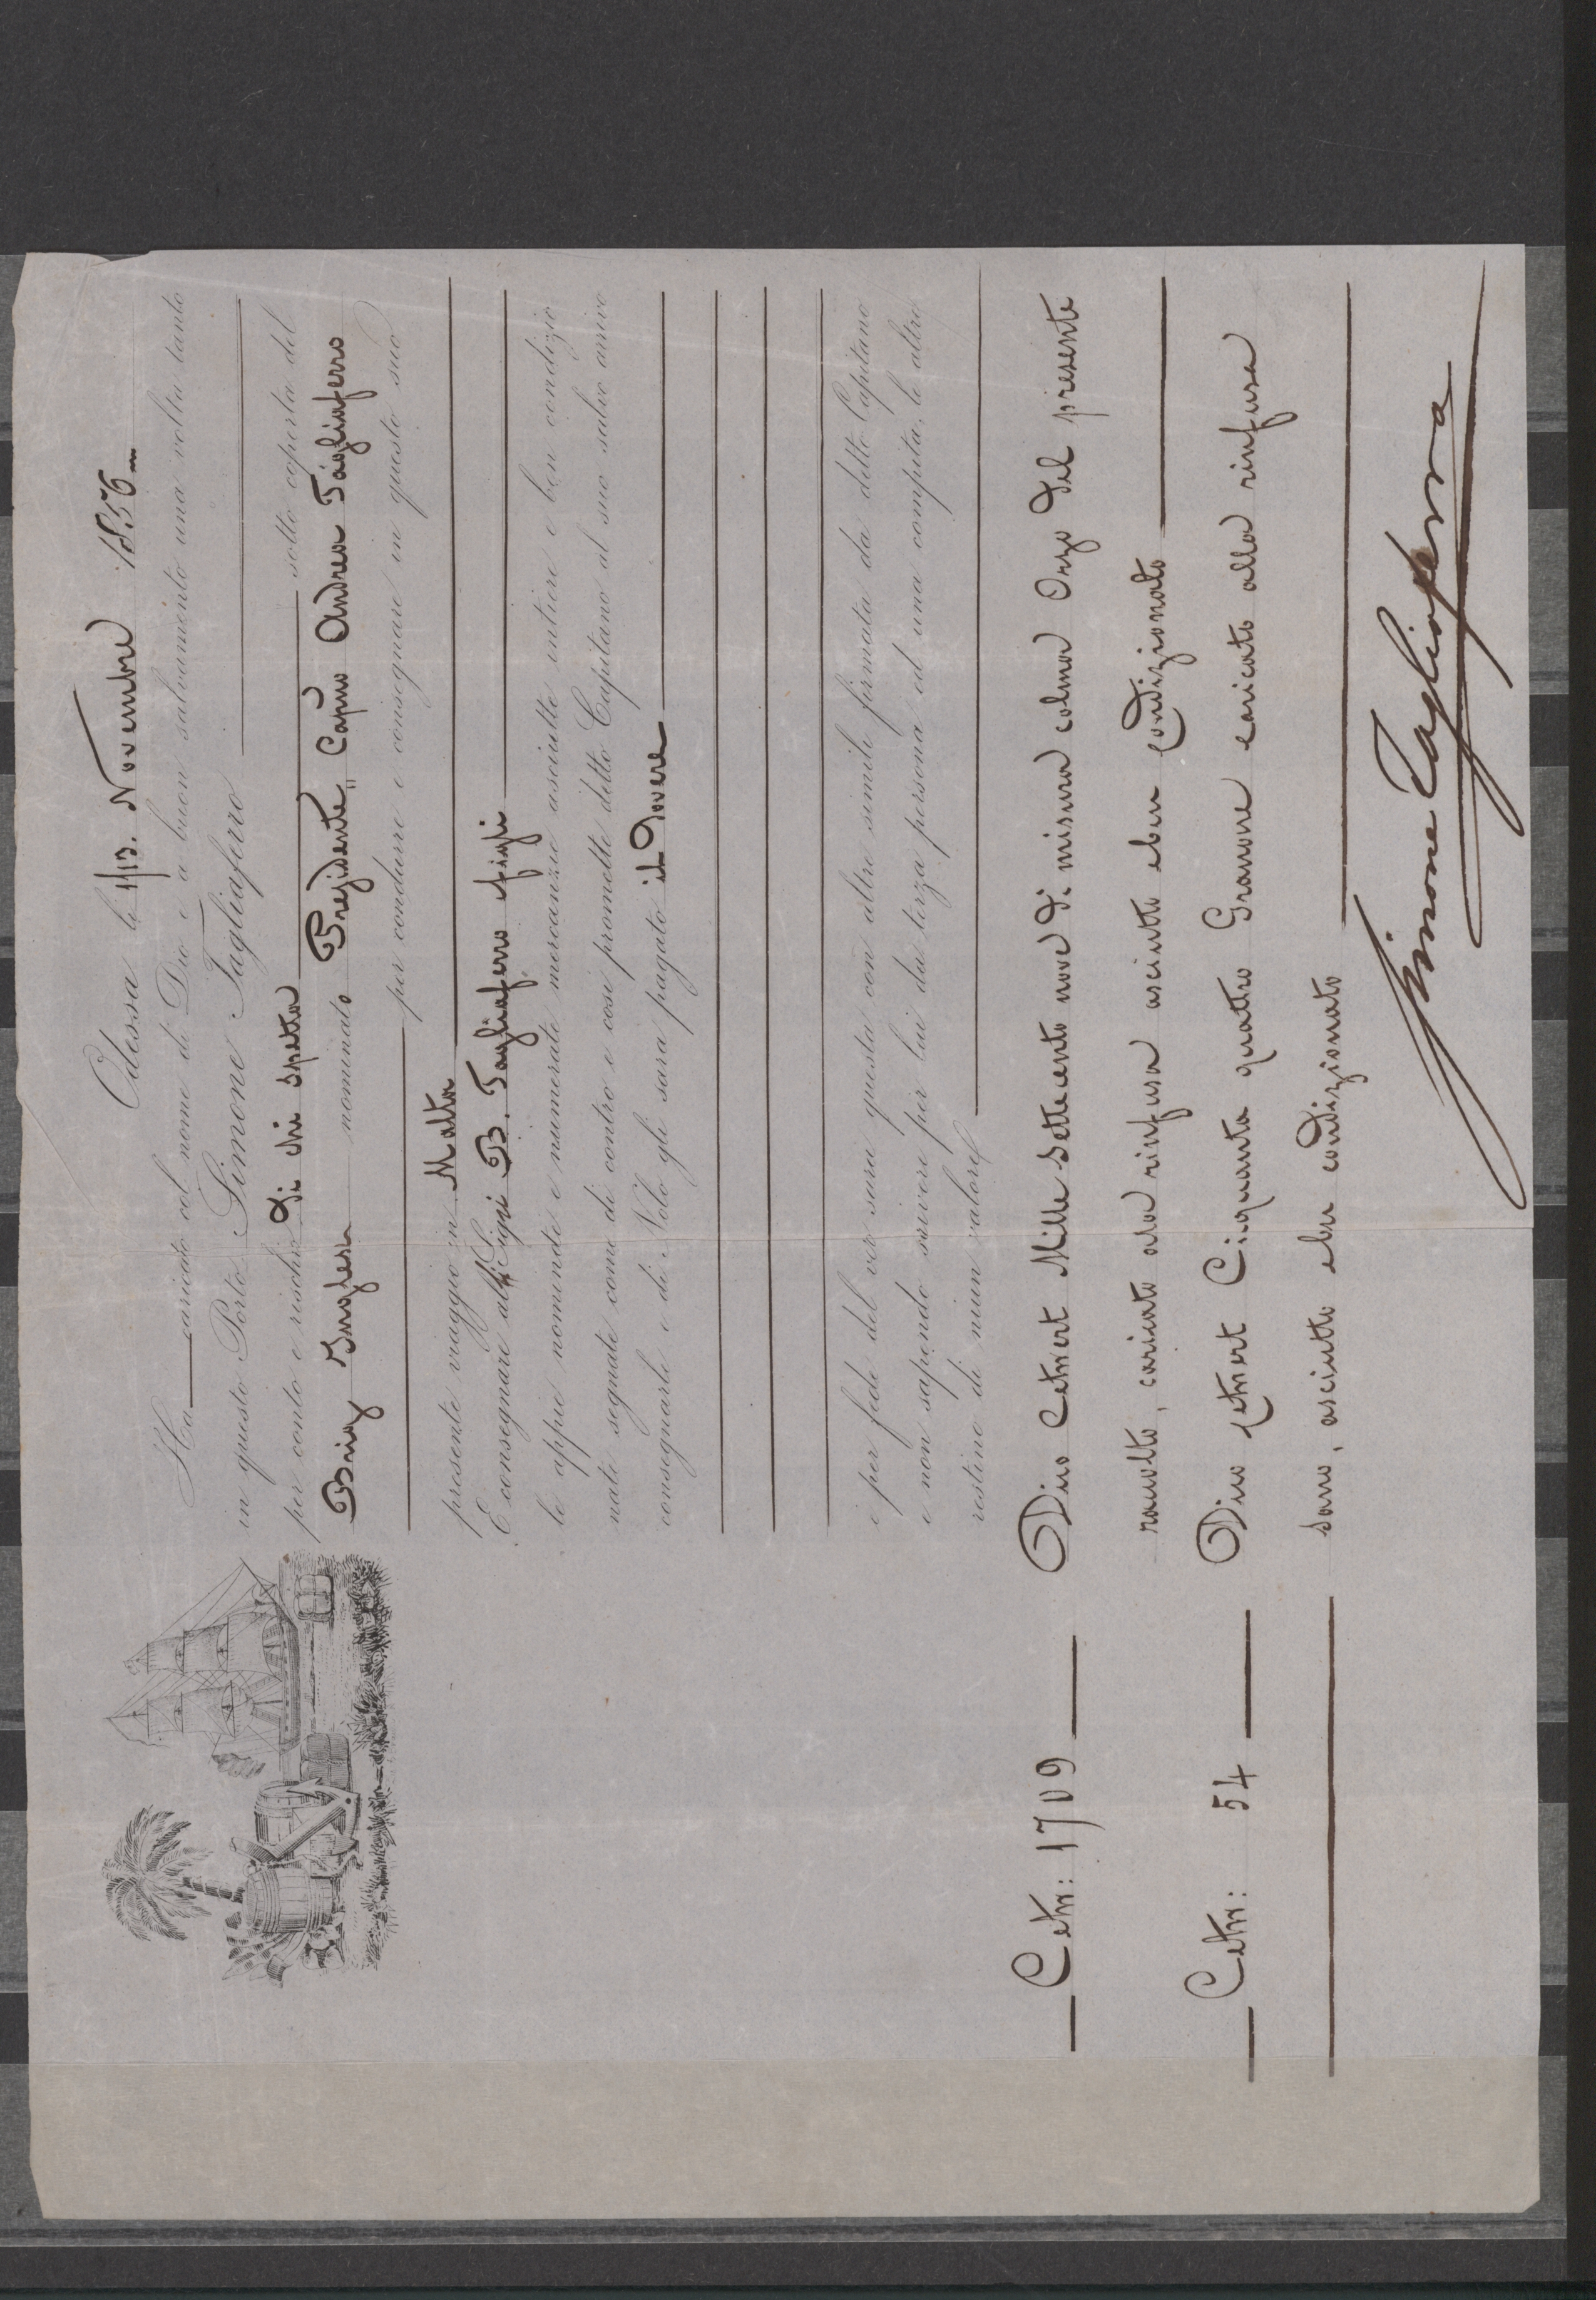 Odessa li 1/13. Novembre 1856
Ha caricato col nome di Dio e a buon salvamento una volta tanto
in questo Porto Simone Tagliaferro
per conto e rischio Di chi spetta sotto coperta del
Brig Inglese nominato Presidente, Capno Andrea Tagliaferro
per condurre e consegnare in questo suo
presente viaggio in Malta
E consegnare alli Sigri B. Tagliaferro e figli
le appie nominate e numerate mercanzie asciutte intiere e ben condizio
nate segnate come di contro e così promette detto Capitano al suo salvo arrivo
consegnarle e di Nolo gli sara pagato il Dovere
e per fede del ver sara questa con altre simile firmata da detto Capitano
e non sapendo scrivere per lui da terza persona ed una compita, le altre
restino di niun valore
Cetw: 1709 Dico Cetwert Mille settecento nove di misura colma Orzo del presente
racolto, caricato ala rinfusa asciutto eben condizionato
Cetw: 54 Dico Cetwert Cinquanta quattro Granone caricato alla rinfusa
sano, asciutto eben condizionato
Simone Tagliaferro